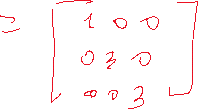 = [ 1 0 0
0 3 0
0 0 3 ]